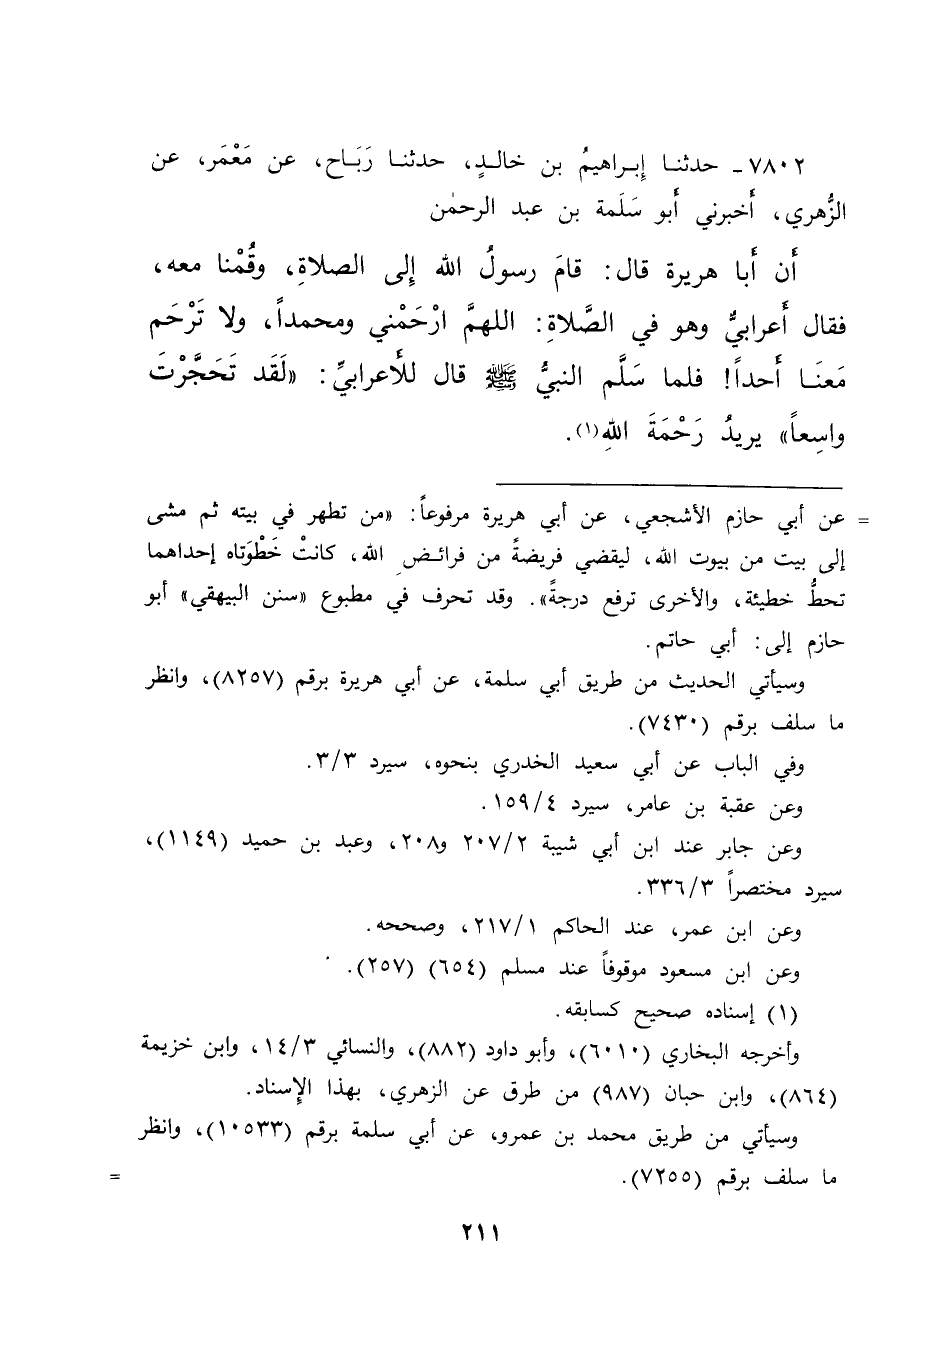 ٧٨٠٢ـ حدثنـا إبـراهيمُ بن خالـدٍ، حدثنـا رَبَـاح، عن مَعْمَر، عن
الزُّهري، أَخبرني أَبو سَلَمة بن عبد الرحمٰن
أَن أَبا هريرة قال: قامَ رسولُ الله إِلى الصلاةِ، وقُمْنا معه،
فقال أَعرابيٌّ وهو في الصَّلاةِ: اللهمَّ ارْحَمْني ومحمداً، ولا تَرْحَم
مَعنَـا أَحداً! فلما سَلَّم النبيُّ ﷺ قال للأَعرابيِّ: «لَقَد تَحَجَّرْتَ
واسِعاً» يريدُ رَحْمَةَ اللهِ(١).
= عن أبي حازم الأشجعي، عن أبي هريرة مرفوعاً: «من تطهر في بيته ثم مشى
إلى بيت من بيوت الله، ليقضي فريضةً من فرائـضِ الله، كانتْ خَطْوَتاه إحداهما
تحطُّ خطيئة، والأخرى ترفع درجةً». وقد تحرف في مطبوع «سنن البيهقي» أبو
حازم إلى: أبي حاتم.
وسيأتي الحديث من طريق أبي سلمة، عن أبي هريرة برقم (٨٢٥٧)، وانظر
ما سلف برقم (٧٤٣٠).
وفي الباب عن أبي سعيد الخدري بنحوه، سيرد ٣/٣.
وعن عقبة بن عامر، سيرد ١٥٩/٤.
وعن جابر عند ابن أبي شيبة ٢٠٧/٢ و٢٠٨، وعبد بن حميد (١١٤٩)،
سيرد مختصراً ٣٣٦/٣.
وعن ابن عمر، عند الحاكم ٢١٧/١، وصححه.
وعن ابن مسعود موقوفاً عند مسلم (٦٥٤) (٢٥٧).
(١) إسناده صحيح كسابقه.
وأخرجه البخاري (٦٠١٠)، وأبو داود (٨٨٢)، والنسائي ١٤/٣، وابن خزيمة
(٨٦٤)، وابن حبان (٩٨٧) من طرق عن الزهري، بهذا الإسناد.
وسيأتي من طريق محمد بن عمرو، عن أبي سلمة برقم (١٠٥٣٣)، وانظر
ما سلف برقم (٧٢٥٥). =
٢١١